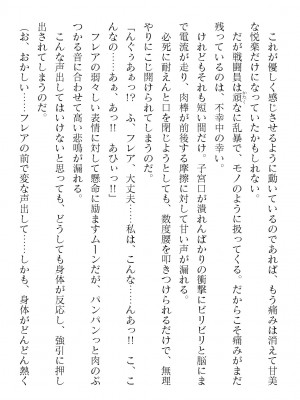 これが優しく感じさせるように動いているのであれば、もう痛みは消えて甘美
な悦楽だけになっていたかもしれない。
だが戦闘員は頑なに乱暴で、モノのように扱ってくる。だからこそ痛みがまだ
残っているのは、不幸中の幸い。
けれどもそれも短い間だけ。子宮口が潰れんばかりの衝撃にビリビリと脳にま
で電流が走り、肉棒が前後する摩擦に対して甘い声が漏れる。
必死に耐えんと口を閉じようとしても、数度腰を叩きつけられるだけで、無理
やりにこじ開けられてしまうのだ。
「んぐぅあぁっ!? ふ、フレア、大丈夫……私は、こんな……んあっ!! こ、こ
んなの……あぁ、あっ!! あひぃっ!!」
フレアの弱々しい表情に対して懸命に励ますムーンだが、パンパンっと肉のぶ
つかる音に合わせて高い悲鳴が漏れる。
こんな声出してはいけないと思っても、どうしても身体が反応し、強引に押し
出されてしまうのだ。
(お、おかしい……フレアの前で変な声出して……しかも、身体がどんどん熱く